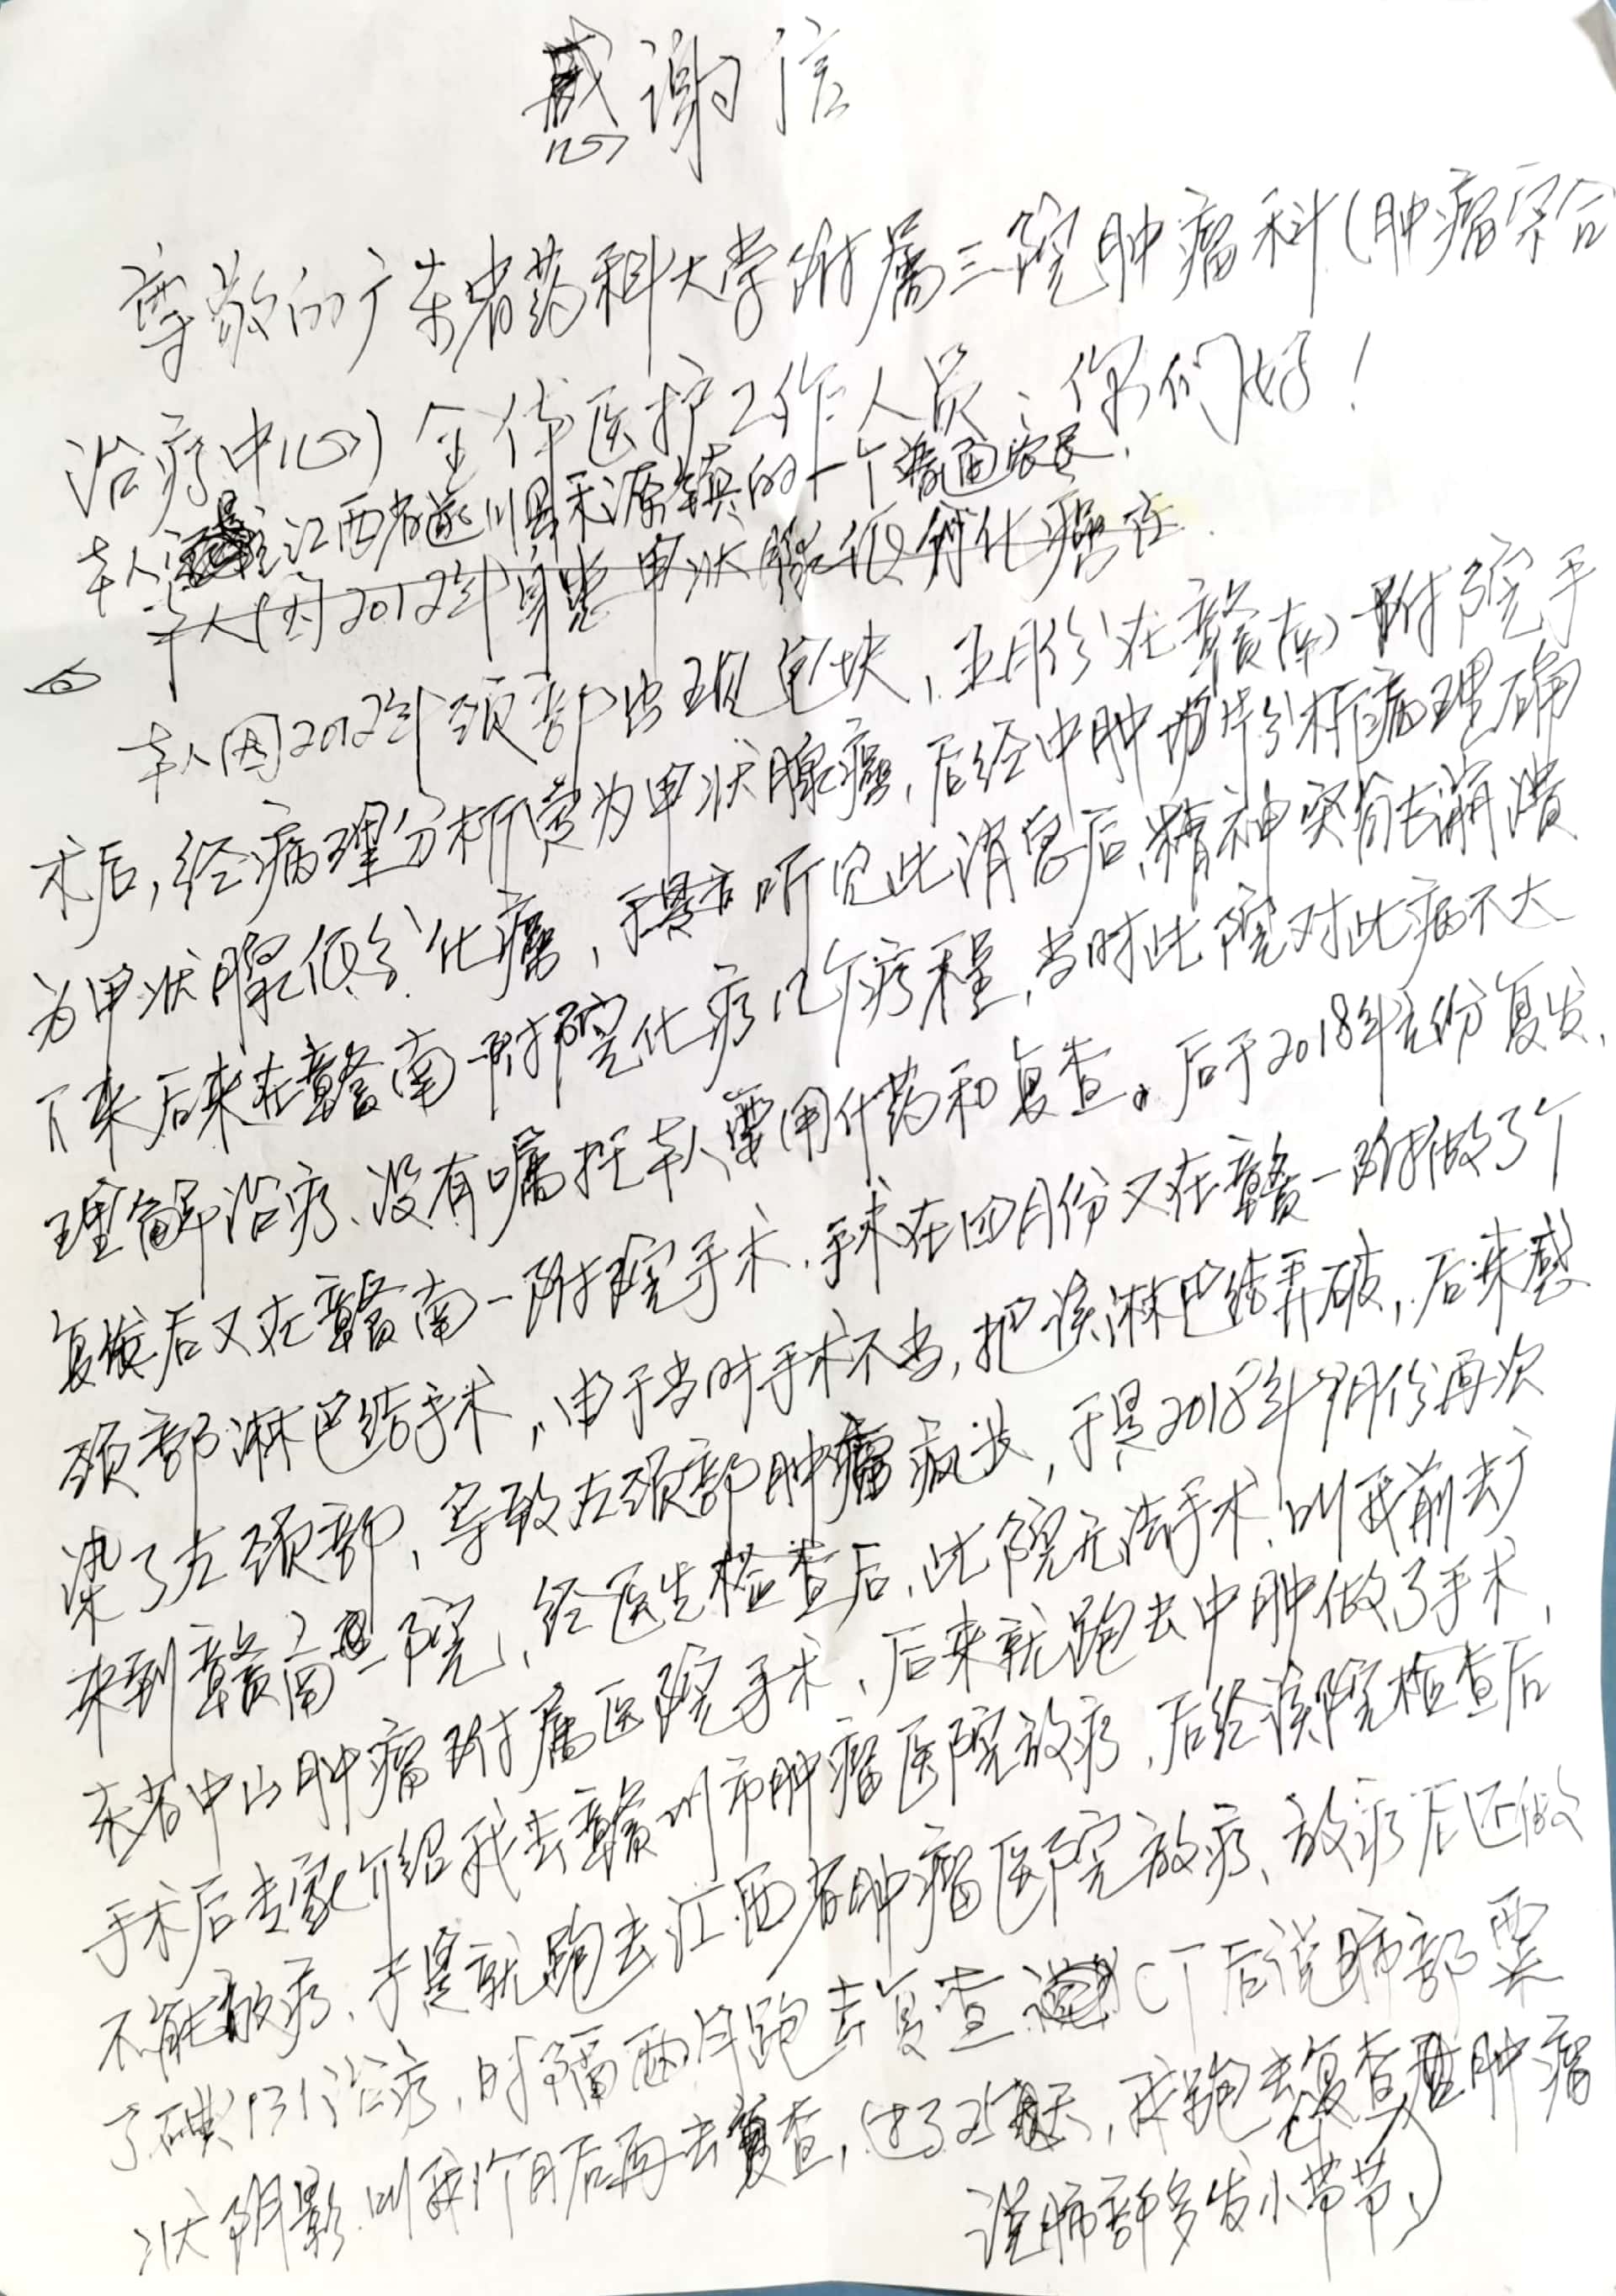 感谢信
尊敬的广东省药科大学附属三院肿瘤科（肿瘤综合
治疗中心）全体医护工作人员：你们好！
本人江西省遂川县禾源镇的一个普通农民.
本人因2012年身患甲状腺低分化癌症
本人因2012年颈部出现包块，五月份在赣南一附院手
术后，经病理分析凝为甲状腺瘤，后经中肿切片分析病理确
为甲状腺低分化癌，于是当听见此消息后，精神突有点崩溃
下来后来在赣南一附院化疗几个疗程，当时此院对此病不大
理解治疗、没有嘱托本人要用什药和复查。后于2018年元份复发、
复发后又在赣南一附院手术.手术在四月份又在赣一附做了个
颈部淋巴结手术，由于当时手术不当，把该淋巴结弄破，后来感
染了左颈部，导致左颈部肿瘤疯长，于是2018年9月份再次
来到赣南一院，经医生检查后，此院无法手术，叫我前去广
东省中山肿瘤附属医院手术，后来就跑去中肿做了手术，
手术后专家介绍我去赣州市肿瘤医院放疗，后经该院检查后
不能放疗、于是就跑去江西省肿瘤医院放疗、放疗后还做
了碘131治疗，时隔两月跑去复查CT后说肺部粟
状阴影.叫我1个月后再去复查，过了25天，我跑去复查肿瘤
说肺部多发小节节、）